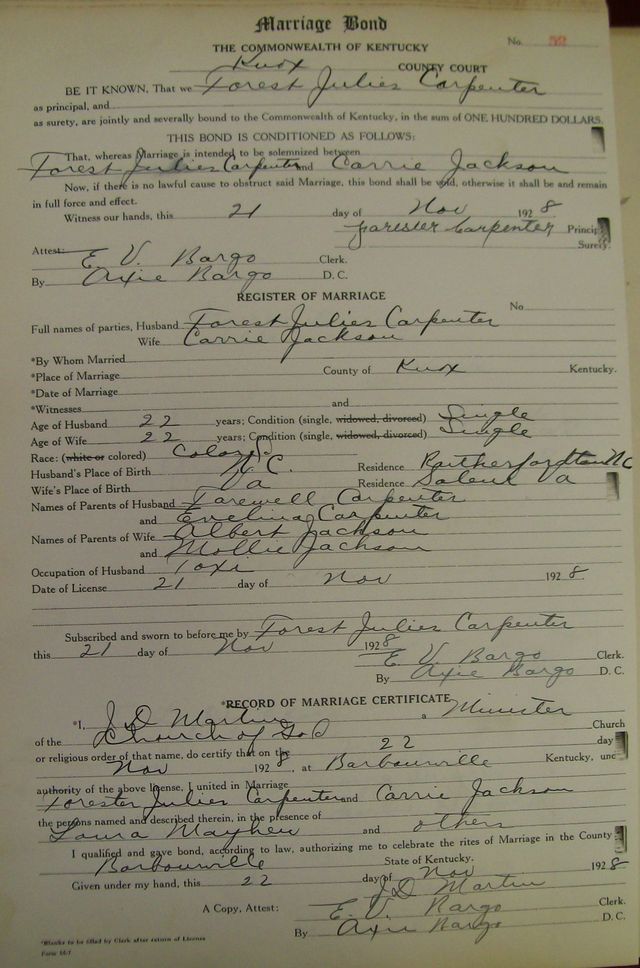 Marriage Bond
THE COMMONWEALTH OF KENTUCKY
No. 52
Knox COUNTY COURT
BE IT KNOWN, That we Forest Julies Carpenter
as principal, and
as surety, are jointly and severally bound to the Commonwealth of Kentucky, in the sum of ONE HUNDRED DOLLARS.
THIS BOND IS CONDITIONED AS FOLLOWS:
That, whereas Marriage is intended to be solemnized between
Forest Julies Carpenter and Carrie Jackson
Now, if there is no lawful cause to obstruct said Marriage, this bond shall be void, otherwise it shall be and remain
in full force and effect.
Witness our hands, this 21 day of Nov 1928
Forister Carpenter Princip
Surety.
Attest:
E. V. Bargo Clerk.
By Axie Bargo D. C.
REGISTER OF MARRIAGE
No
Full names of parties, Husband Forest Julies Carpenter
Wife Carrie Jackson
*By Whom Married
*Place of Marriage County of Knox Kentucky.
*Date of Marriage
*Witnesses and
Age of Husband 22 years; Condition (single, widowed, divorced) Single
Age of Wife 22 years; Condition (single, widowed, divorced) Single
Race: (white or colored) Colored
Husband's Place of Birth N.C. Residence Rutherfordton N C
Wife's Place of Birth Va Residence Salem Va
Names of Parents of Husband Farewell Carpenter
and Evelina Carpenter
Names of Parents of Wife Albert Jackson
and Mollie Jackson
Occupation of Husband Toxi
Date of License 21 day of Nov 1928.
Subscribed and sworn to before me by Forest Julies Carpenter
this 21 day of Nov 1928
E V Bargo Clerk.
By Axie Bargo D. C.
*RECORD OF MARRIAGE CERTIFICATE
*I, J D Martin a Minister
of the Church of God Church
or religious order of that name, do certify that on the 22 day
Nov 1928, at Barbourville Kentucky, und
authority of the above license, I united in Marriage
Forester Julies Carpenter and Carrie Jackson
the persons named and described therein, in the presence of
Laura Mayhew and others
I qualified and gave bond, according to law, authorizing me to celebrate the rites of Marriage in the County
Barbourville State of Kentucky.
Given under my hand, this 22 day of Nov 1928
J D Martin
A Copy, Attest: E. V. Bargo Clerk.
By Axie Bargo D. C.
*Blanks to be filled by Clerk after return of License